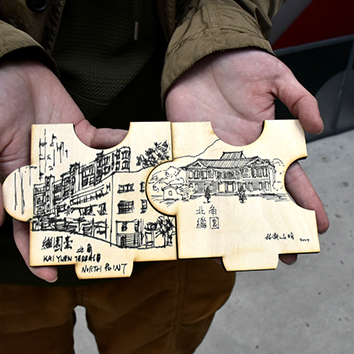 繼園臺 北角
KAI YUEN TERRACE
NORTH POINT
北角
繼園